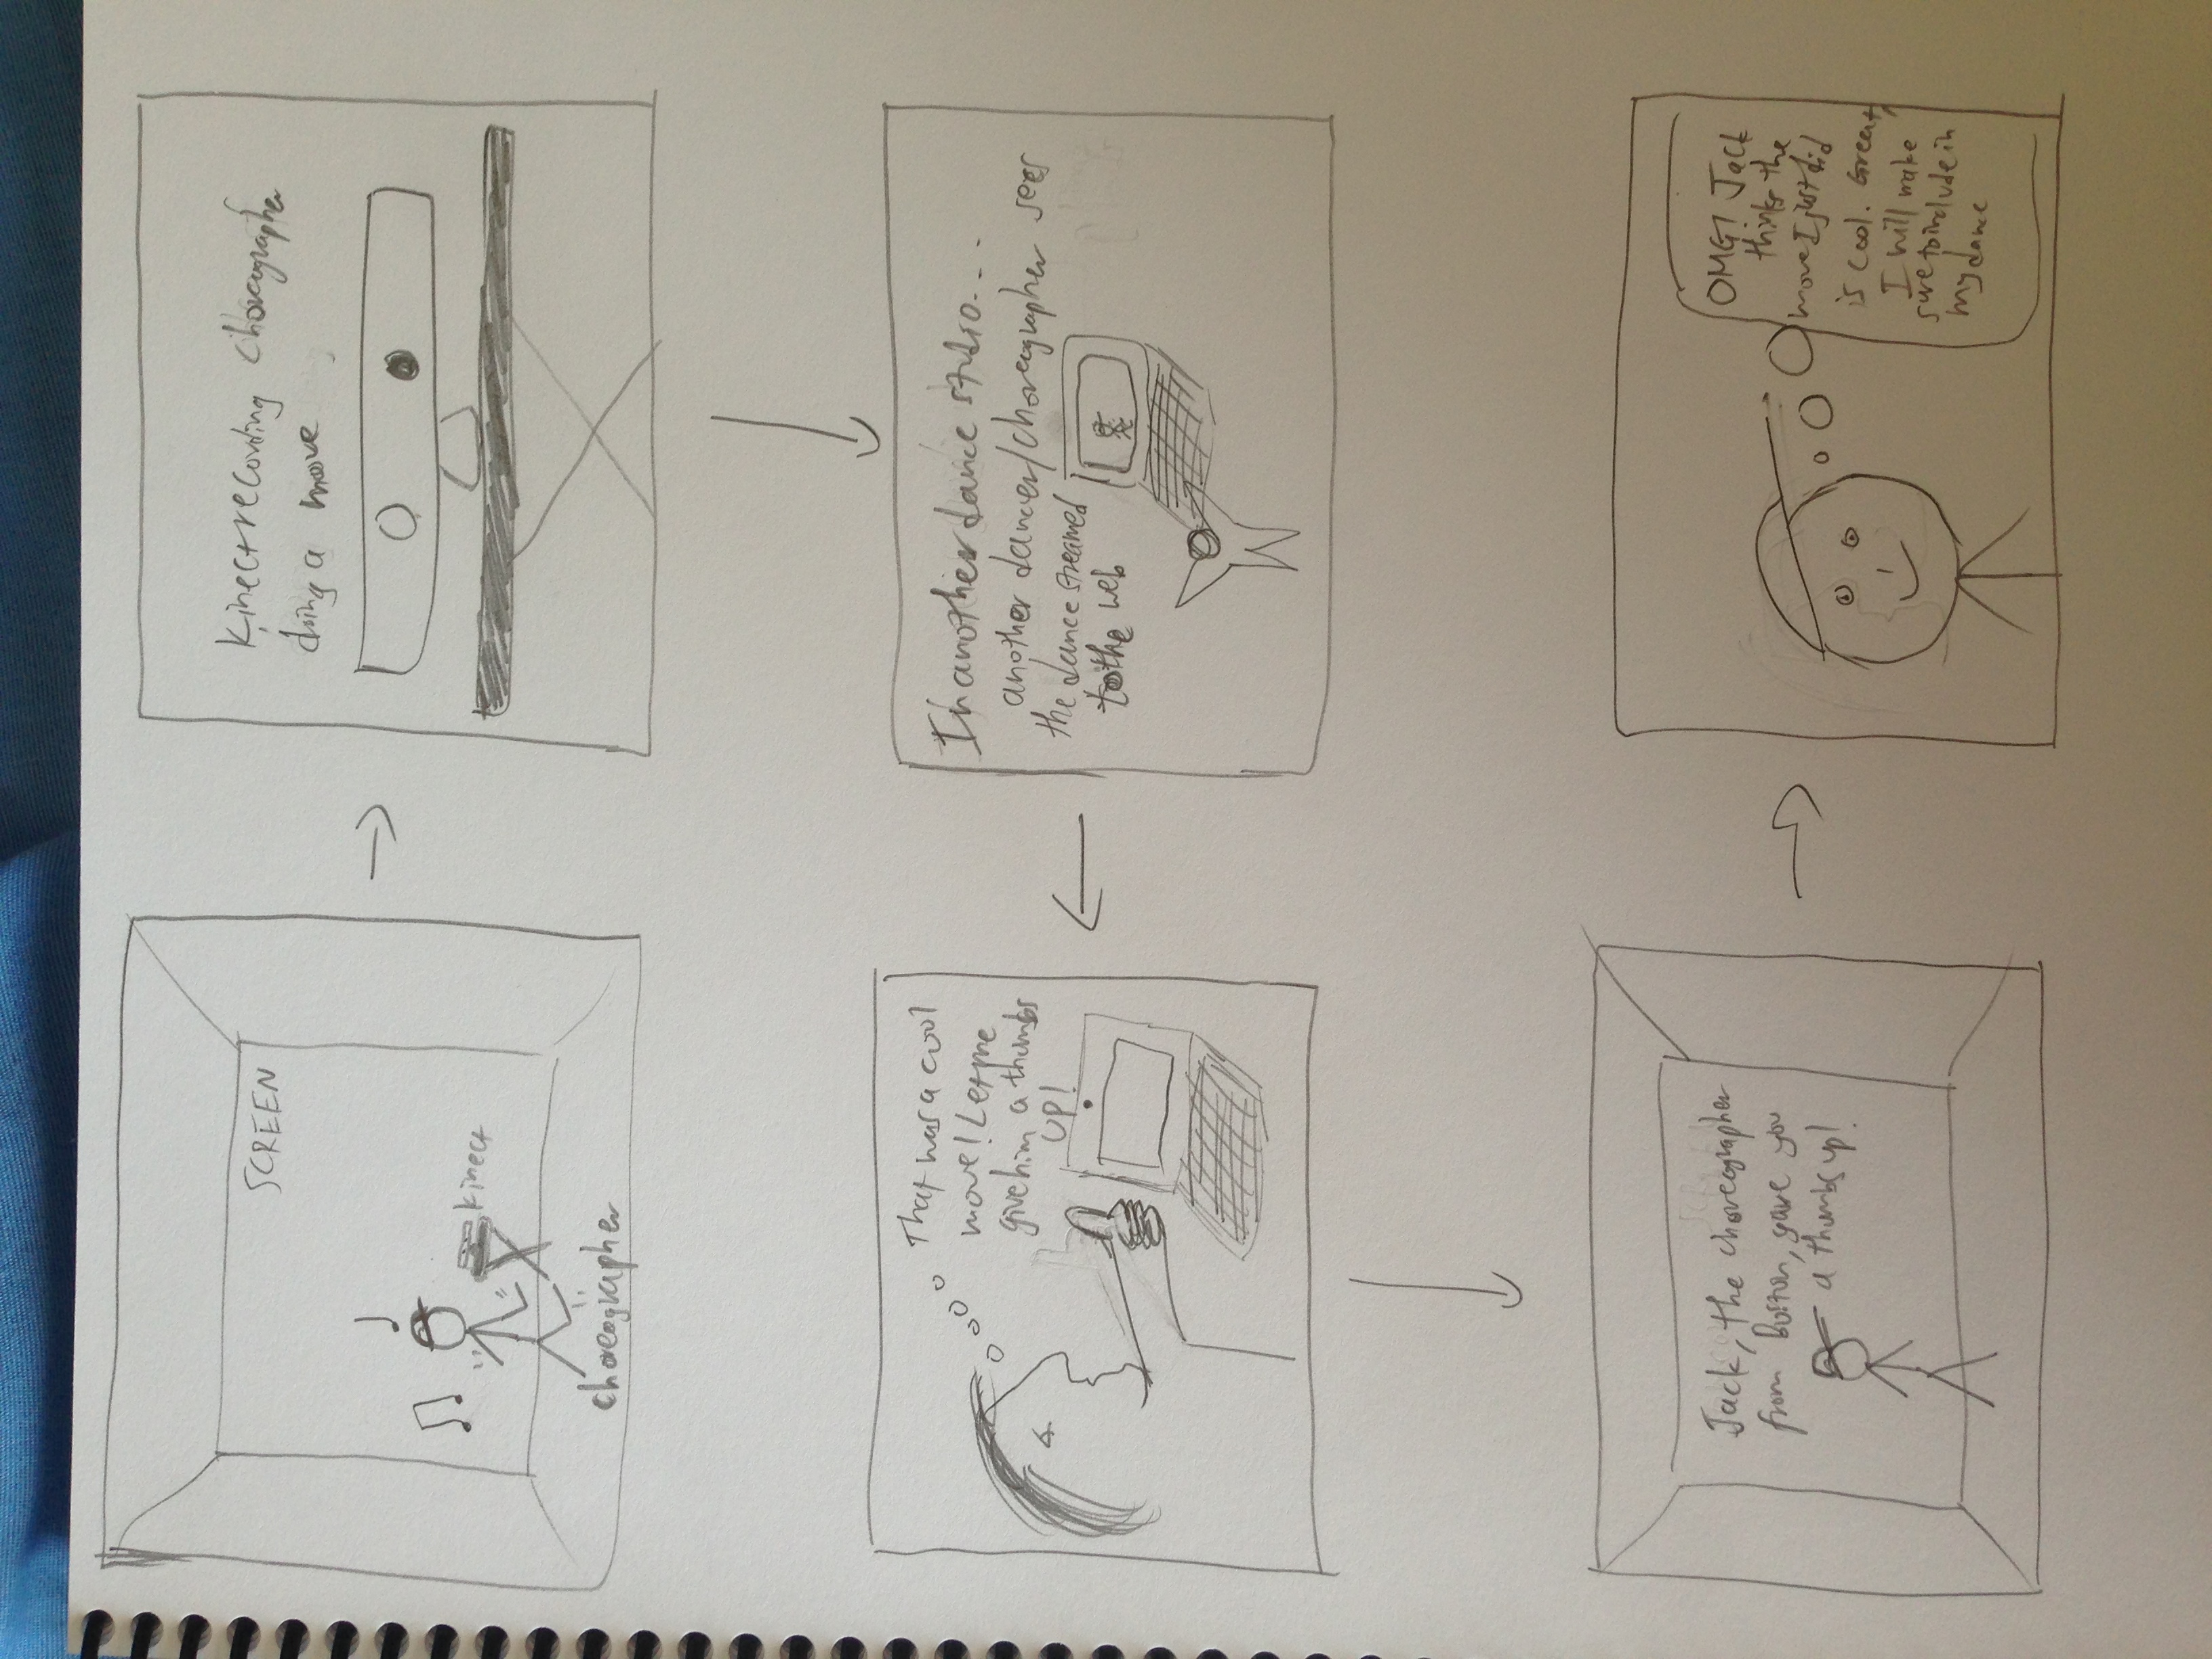 SCREEN
kinect
choreographer
kinect recording choreographer
doing a move
In another dance studio...
another dancer/choreographer sees
the dance streamed
to the web
That was a cool
move! Let me
give him a thumbs
up!
Jack, the choreographer
from Boston, gave you
a thumbs up!
OMG! Jack
thinks the
move I just did
is cool. Great,
I will make
sure to include in
my dance